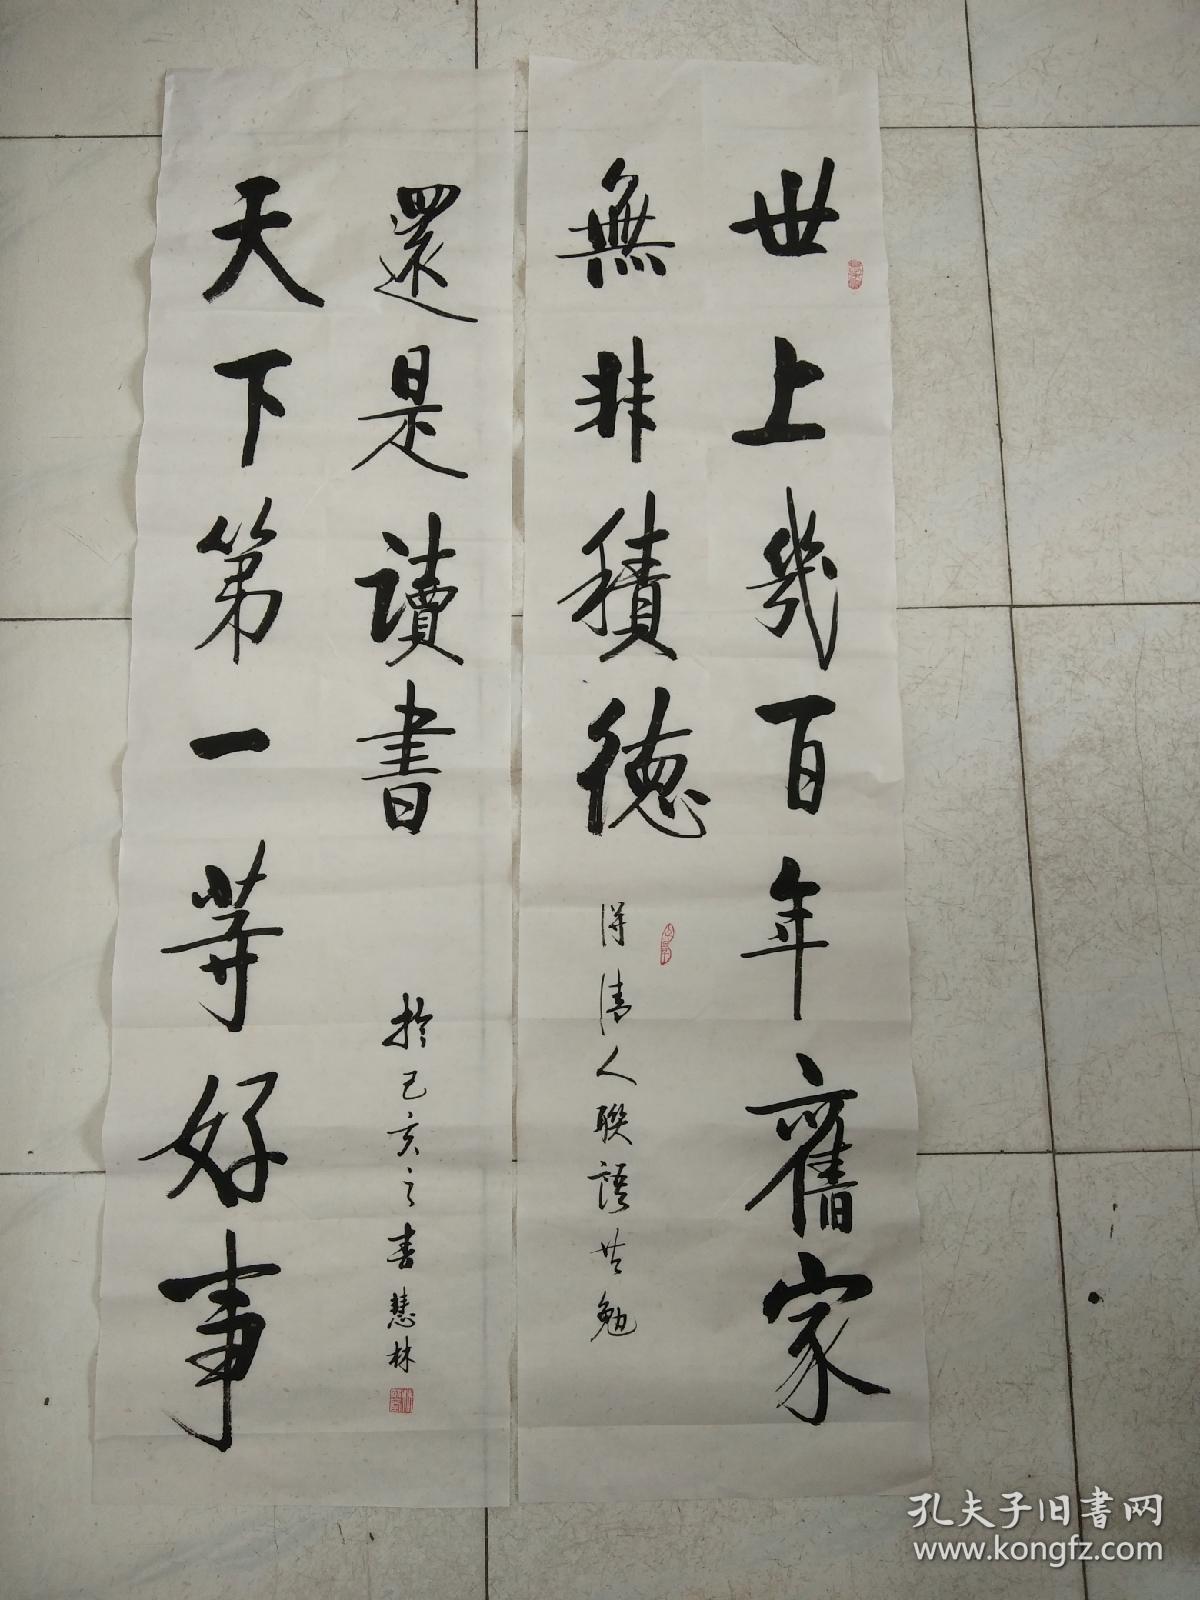 世上幾百年舊家
無非積德
得清人聯語共勉
天下第一等好事
還是讀書
於己亥之春慧林
孔夫子旧書网
www.kongfz.com